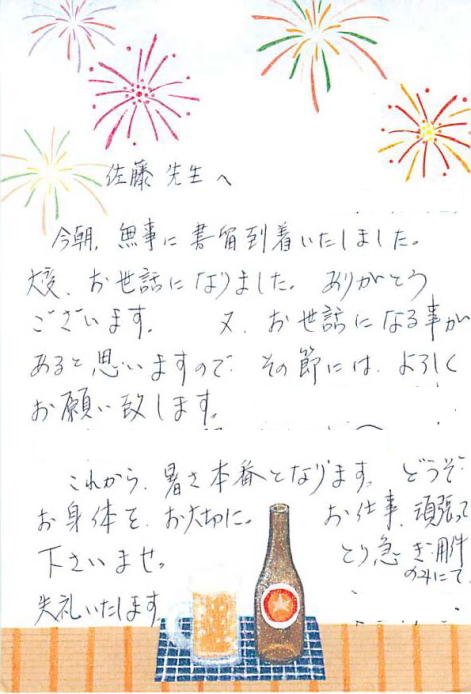 佐藤 先生 へ
今朝、無事に書留到着いたしました。
大変、お世話になりました。ありがとう
ございます。 又、お世話になる事が
あると思いますので、その節には、よろしく
お願い致します。
これから、暑さ本番となります。どうぞ
お身体を、お大切に。 お仕事、頑張って
下さいませ。 とり急ぎ用件
のみにて、
失礼いたします